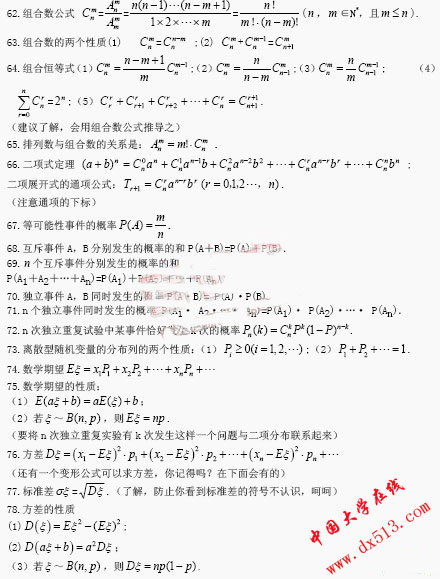 62.组合数公式 C_n^m = A_n^m / A_m^m = n(n−1)⋯(n−m+1) / 1×2×⋯×m = n! / m!·(n−m)! (n, m∈N*, 且 m≤n).
63.组合数的两个性质(1) C_n^m = C_n^{n−m} ;(2) C_n^m + C_n^{m−1} = C_{n+1}^m
64.组合恒等式(1) C_n^m = (n−m+1)/m C_n^{m−1};(2) C_n^m = n/(n−m) C_{n−1}^m;(3) C_n^m = n/m C_{n−1}^{m−1}; (4)
∑_{r=0}^n C_n^r = 2^n;(5) C_r^r + C_{r+1}^r + C_{r+2}^r + ⋯ + C_n^r = C_{n+1}^{r+1}.
(建议了解,会用组合数公式推导之)
65.排列数与组合数的关系是: A_n^m = m!·C_n^m .
66.二项式定理 (a+b)^n = C_n^0 a^n + C_n^1 a^{n−1}b + C_n^2 a^{n−2}b^2 + ⋯ + C_n^r a^{n−r}b^r + ⋯ + C_n^n b^n ;
二项展开式的通项公式: T_{r+1} = C_n^r a^{n−r}b^r (r=0,1,2⋯, n).
(注意通项的下标)
67.等可能性事件的概率 P(A) = m/n.
68.互斥事件 A, B 分别发生的概率的和 P(A+B)=P(A)+P(B).
69. n 个互斥事件分别发生的概率的和
P(A₁+A₂+⋯+Aₙ)=P(A₁)+
70.独立事件 A, B 同时发生的 P(A·B)= P(A)·P(B).
71.n 个独立事件同时发生的概率 P(A₁· A₂·⋯· Aₙ)=P(A₁)· P(A₂)·⋯· P(Aₙ).
72.n 次独立重复试验中某事件恰好发生 k 次的概率 P_n(k) = C_n^k P^k (1−P)^{n−k}.
73.离散型随机变量的分布列的两个性质:(1) P_i ≥ 0(i=1,2,⋯);(2) P_1 + P_2 + ⋯ = 1.
74.数学期望 Eξ = x_1P_1 + x_2P_2 + ⋯ + x_nP_n + ⋯
75.数学期望的性质:
(1) E(aξ+b) = aE(ξ)+b;
(2)若 ξ ~ B(n, p),则 Eξ = np.
(要将 n 次独立重复实验有 k 次发生这样一个问题与二项分布联系起来)
76.方差 Dξ = (x_1−Eξ)^2·p_1 + (x_2−Eξ)^2·p_2 + ⋯ + (x_n−Eξ)^2·p_n + ⋯
(还有一个变形公式可以求方差,你记得吗?在下面会有的)
77.标准差 σξ = √Dξ .(了解,防止你看到标准差的符号不认识,呵呵)
78.方差的性质
(1) D(ξ) = Eξ^2 − (Eξ)^2;
(2) D(aξ+b) = a^2Dξ;
(3)若 ξ ~ B(n, p),则 Dξ = np(1−p).
中国大学在线
www.dx513.com